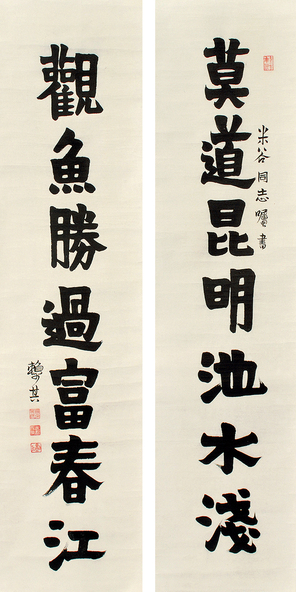 莫道昆明池水淺
米谷同志囑書
觀魚勝過富春江